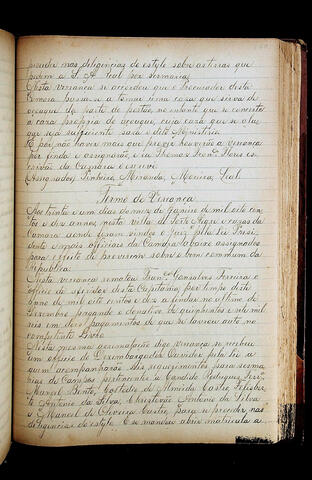 proceder nas diligencias do estylo sobre as terras que
pedem a S. A. Real por sesmarias
Nesta vereança se accordou que o Procurador desta
Camara passe a tomar uma casa que serva de
açougue da parte do portão, no entanto que se concerta
a casa propria do açougue, cuja casa que se alu
gar seja sufficiente para o dito Ministerio
E por não haver mais que prover houverão a vereança
por finda e assignarão, e eu Thomaz José Flores es
crivão da Camara o escrevi
(Assignados) Pinheiro, Miranda, Moreira, Leal
Termo de Vereança
Aos trinta e um dias do mez de Janeiro de mil oito cen
tos e dez annos, nesta villa de Porto Alegre e casas da
Camara aonde foram vindos o Juiz pela Lei Presi
dente e mais officiaes da Camara abaixo assignados
para effeito de proverem sobre o bem commum da
republica.
Nesta vereança rematou Franco Gonsalves Ferreira o
officio de aferidor desta Capitania, por tempo deste
anno de mil oito centos e dez a findar no ultimo de
Dezembro pagando o donativo de quinhentos e um mil
reis em dois pagamentos de que se lavrou auto no
competente Livro
Nesta mesma accumulação digo vereança se recebeu
um officio do Dezembargador Ouvidor pela Lei a
qual acompanharão seis requerimentos para sesma
rias de Campos pertencentes a Candido Rodrigues Ferrª
Manoel Bento, Custodio de Almeida Castro, Felisber
to Antonio da Silva, Christovão Antonio da Silva
e Manoel de Oliveira Castro, para se proceder nas
diligencias do estylo. E se mandou abrir matricula a